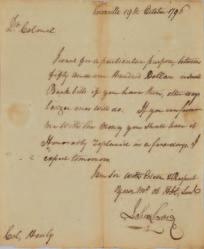 Knoxville 19th October 1796
Dr. Colonel
I want for a particular purpose between
fifty and one Hundred Dollars in small
Bank bills if you have them, otherways
larger ones will do. If you can favor
me with the Money you shall have it
Honorably replaced in a few days. I
expect tomorrow
I am Sir with Esteem & Respect
Your Mo. Ob. Hble. Servt.
Col. Henly